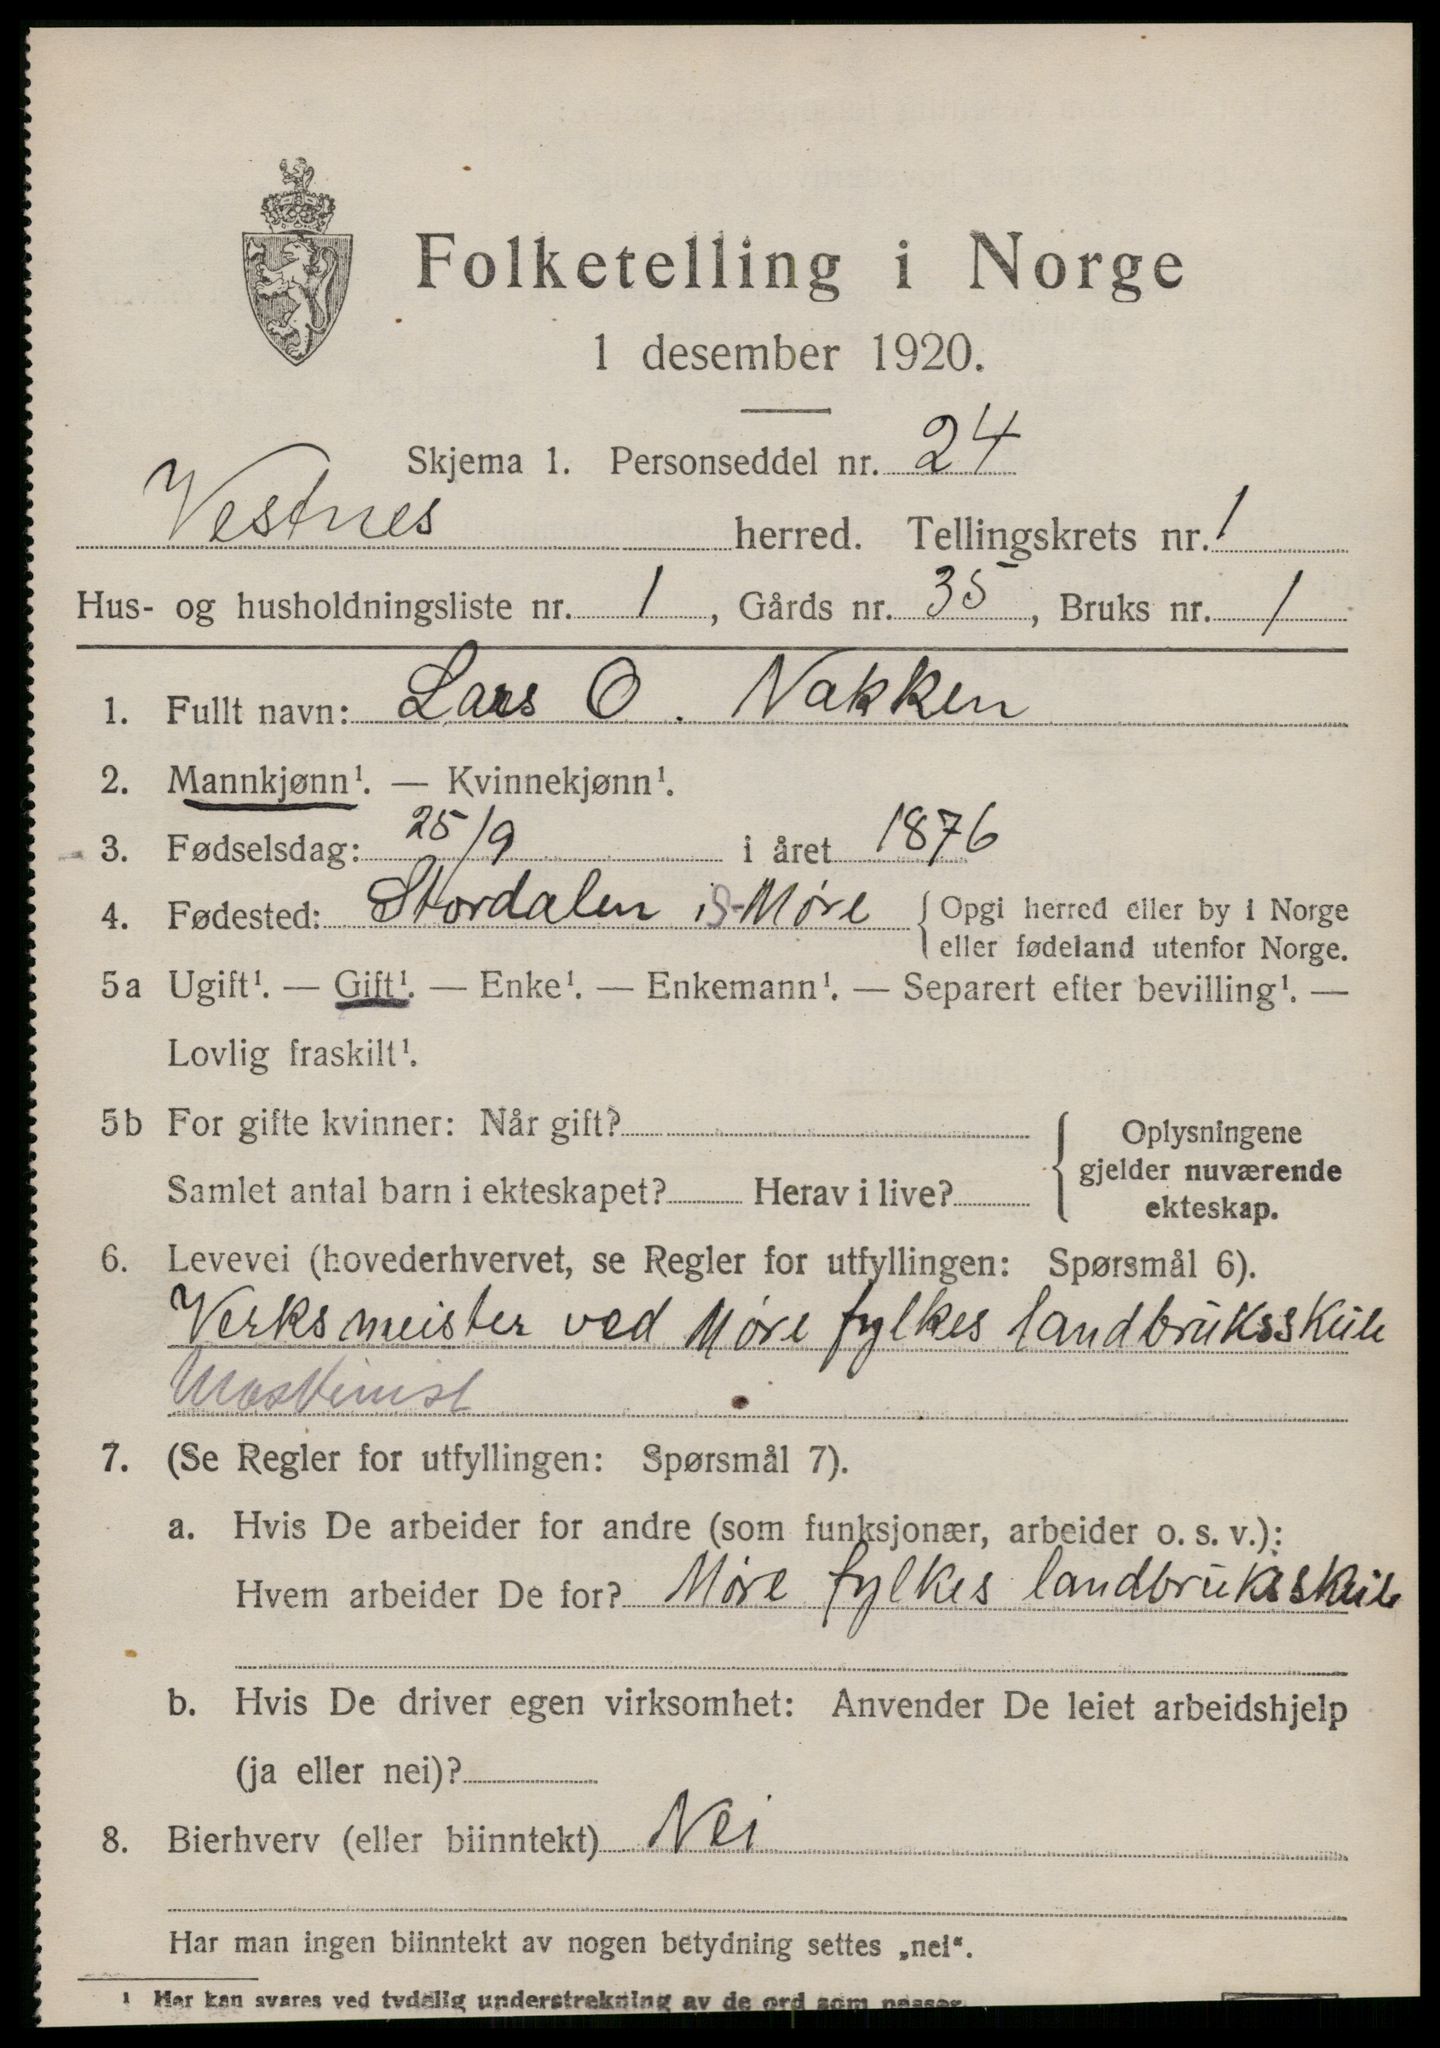 Folketelling i Norge
1 desember 1920.
Skjema 1. Personseddel nr. 24
Vestnes herred. Tellingskrets nr. 1
Hus- og husholdningsliste nr. 1, Gårds nr. 35, Bruks nr. 1
1. Fullt navn: Lars O. Nakken
2. Mannkjønn¹. — Kvinnekjønn¹.
3. Fødselsdag: 25/9 i året 1876
4. Fødested: Stordalen i S. Møre { Opgi herred eller by i Norge
eller fødeland utenfor Norge.
5a Ugift¹. — Gift¹. — Enke¹. — Enkemann¹. — Separert efter bevilling¹. —
Lovlig fraskilt¹.
5b For gifte kvinner: Når gift?
Samlet antal barn i ekteskapet? Herav i live?
{ Oplysningene
gjelder nuværende
ekteskap.
6. Levevei (hovederhvervet, se Regler for utfyllingen: Spørsmål 6).
Verksmeister ved Møre fylkes landbruksskule
Maskinist
7. (Se Regler for utfyllingen: Spørsmål 7).
a. Hvis De arbeider for andre (som funksjonær, arbeider o. s. v.):
Hvem arbeider De for? Møre fylkes landbruksskule
b. Hvis De driver egen virksomhet: Anvender De leiet arbeidshjelp
(ja eller nei)?
8. Bierhverv (eller biinntekt) Nei
Har man ingen biinntekt av nogen betydning settes „nei“.
¹ Her kan svares ved tydelig understrekning av de ord som passer.